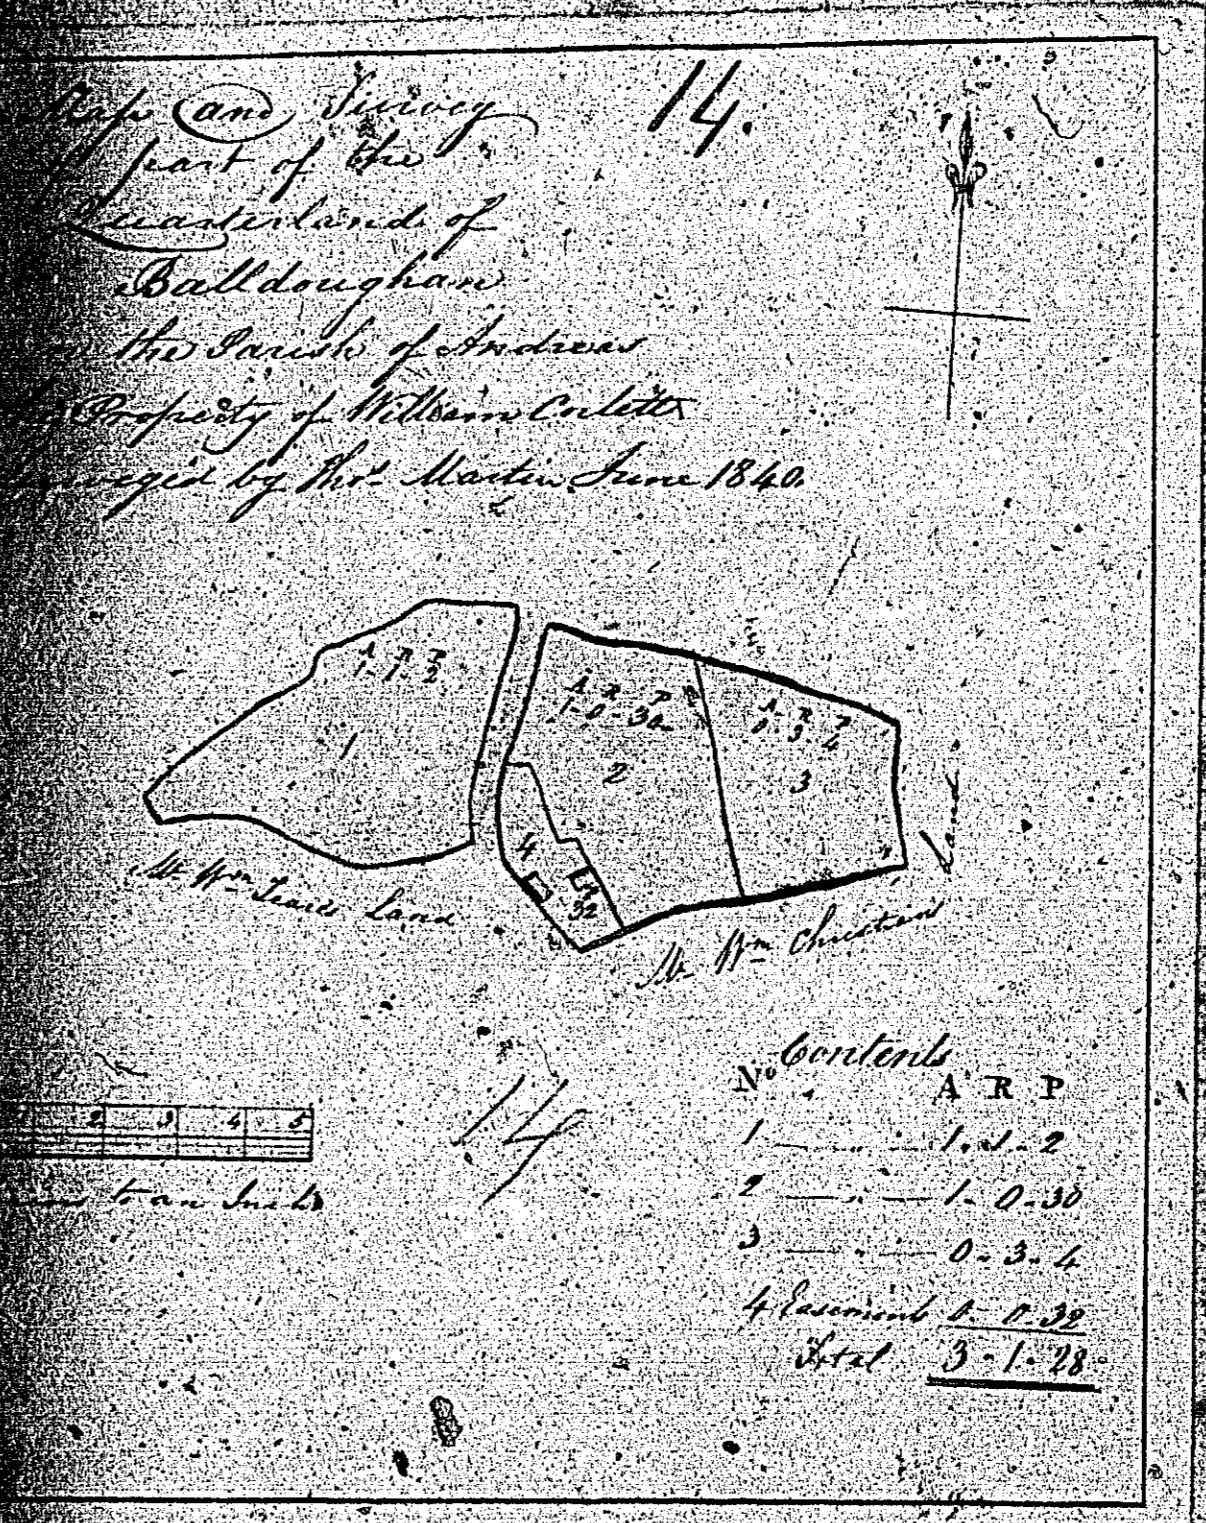 Map and Survey
part of the
Quarterland of
Balldoughan
the Parish of Andreas
Property of William Corlett
by Thos Martin June 1840.
14.
A R P
1-1-2
1
A R P
1-0-30
2
A R P
0-3-4
3
4
32
Mr Wm Land
Mr Wm Christian
Land
2 3 4 5
to an Inch
14
Contents
No A R P
1 1-1-2
2 1-0-30
3 0-3-4
4 Easement 0-0-32
Total 3-1-28